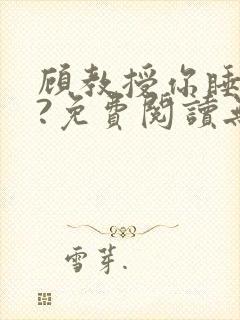 顾教授你睡
?免費閱讀
雪芽.